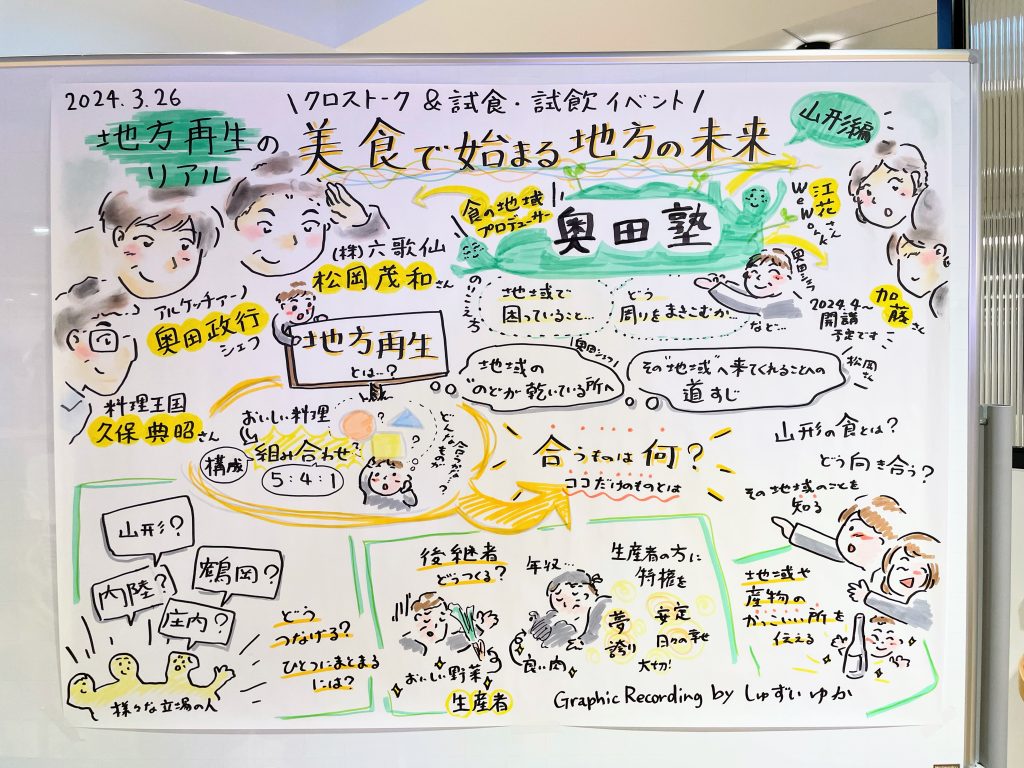 2024.3.26
\クロストーク &試食・試飲イベント/
地方再生の
リアル
美食で始まる地方の未来
山形編
食の地域
プロデューサー
奥田塾
WeWork
江花さん
(株)六歌仙
松岡茂和さん
アルケッチァーノ
奥田政行
シェフ
料理王国
久保典昭さん
地方再生
とは…?
のこえ方
地域で
困っていること…
どう
周りをまきこむか…
など…
奥田シェフ
2024.4〜
開講
予定です
加藤さん
奥田シェフ
地域の
"のどが乾いている所へ
その"地域"へ来てくれることへの
道すじ
松岡さん
おいしい料理
組み合わせ
構成
5:4:1
どんなものが
合うかな…?
合うものは何?
ココだけのものとは
山形の食とは?
どう向き合う?
その地域のことを
知る
山形?
内陸?
鶴岡?
庄内?
様々な立場の人
どう
つなげる?
ひとつにまとまる
には?
後継者
どうつくる?
おいしい野菜
生産者
年収…
良い肉
生産者の方に
特権を
夢
誇り
安定
日々の幸せ
大切!
地域や
産物の
かっこいい所を
伝える
Graphic Recording by しゅすい ゆか